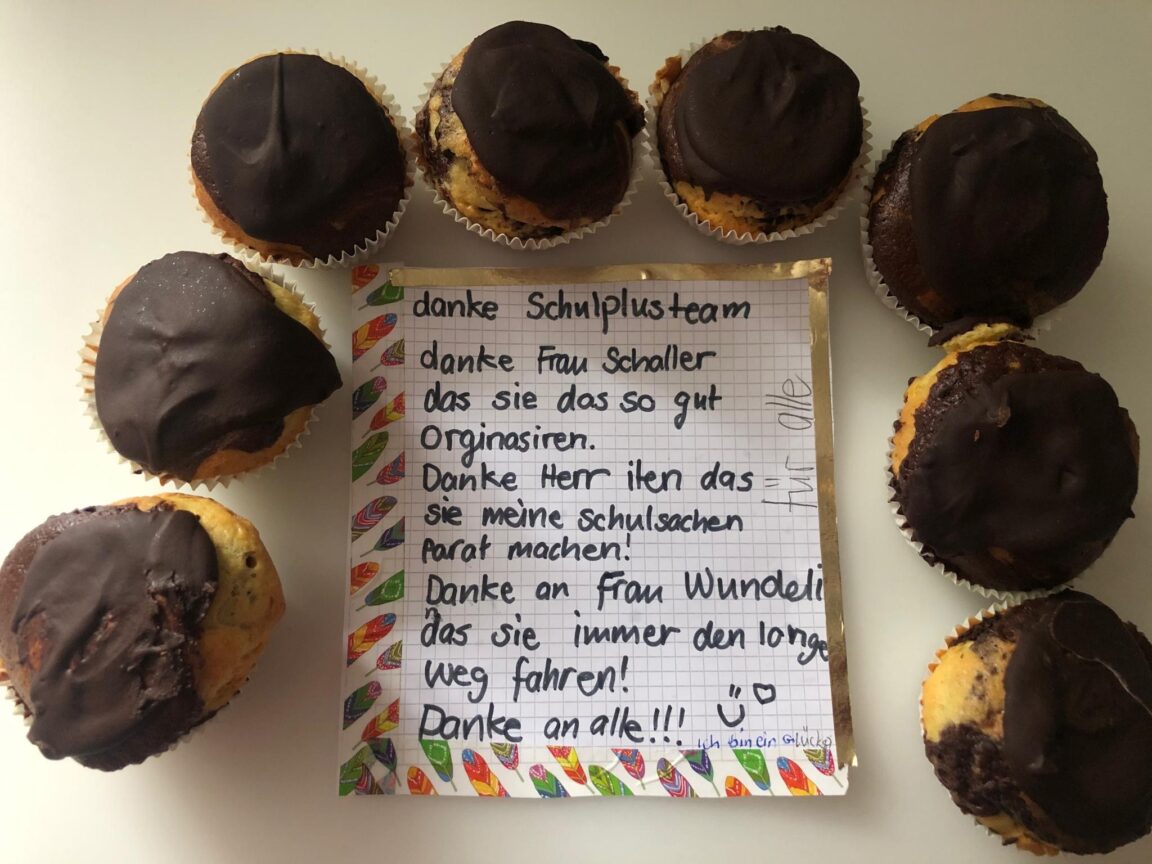 danke Schulplusteam
danke Frau Schaller
das sie das so gut
Orginasiren.
Danke Herr iten das
sie meine schulsachen
parat machen!
Danke an Frau Wundeli
n das sie immer den lange
weg fahren!
Danke an alle!!!
ich bin ein Glück
für alle